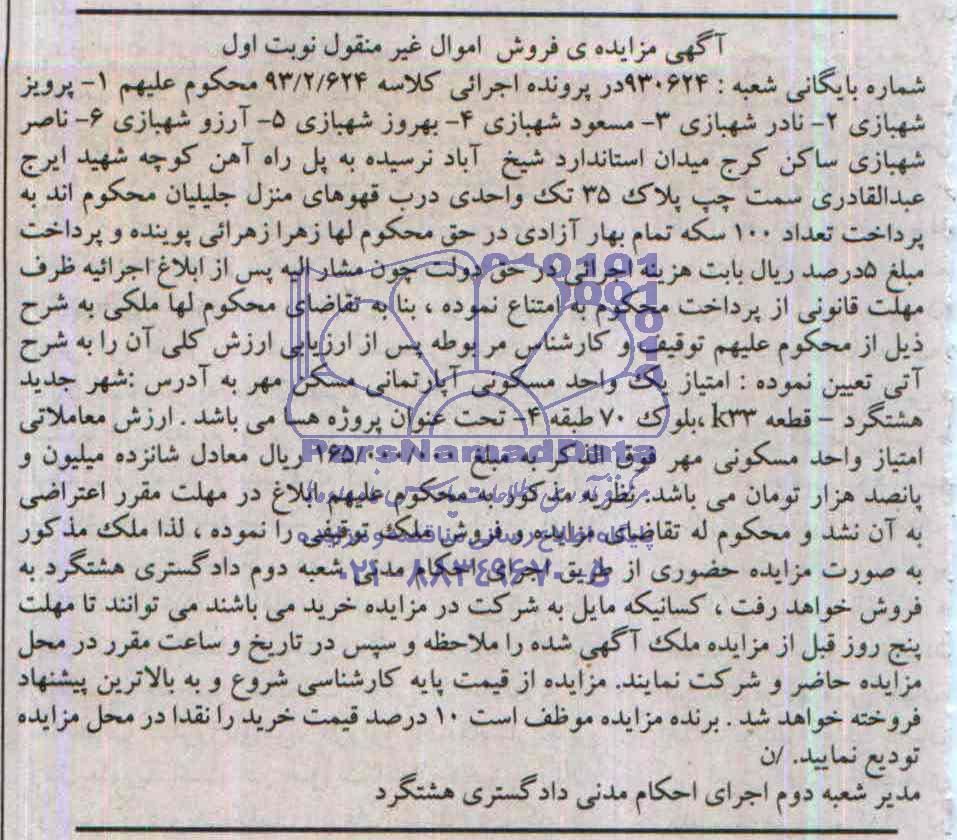 آگهی مزایده ی فروش اموال غیر منقول نوبت اول
شماره بایگانی شعبه : ۹۳۰۶۲۴در پرونده اجرائی کلاسه ۹۳/۲/۶۲۴ محکوم علیهم ۱- پرویز
شهبازی ۲- نادر شهبازی ۳- مسعود شهبازی ۴- بهروز شهبازی ۵- آرزو شهبازی ۶- ناصر
شهبازی ساکن کرج میدان استاندارد شیخ آباد نرسیده به پل راه آهن کوچه شهید ایرج
عبدالقادری سمت چپ پلاک ۳۵ تک واحدی درب قهوهای منزل جلیلیان محکوم اند به
پرداخت تعداد ۱۰۰ سکه تمام بهار آزادی در حق محکوم لها زهرا زهرائی پوینده و پرداخت
مبلغ ۵درصد ریال بابت هزینه اجرائی در حق دولت چون مشار الیه پس از ابلاغ اجرائیه ظرف
مهلت قانونی از پرداخت محکوم به امتناع نموده ، بنا به تقاضای محکوم لها ملکی به شرح
ذیل از محکوم علیهم توقیف و کارشناس مر بوطه پس از ارزیابی ارزش کلی آن را به شرح
آتی تعیین نموده : امتیاز یک واحد مسکونی آپارتمانی مسکن مهر به آدرس :شهر جدید
هشتگرد - قطعه k۳۳ ،بلوک ۷۰ طبقه ۴- تحت عنوان پروژه هسا می باشد . ارزش معاملاتی
امتیاز واحد مسکونی مهر فوق الذکر به مبلغ ۱۶۵/۰۰۰/۰۰۰ ریال معادل شانزده میلیون و
پانصد هزار تومان می باشد. نظریه مذکور به محکوم علیهم ابلاغ در مهلت مقرر اعتراضی
به آن نشد و محکوم له تقاضای مزایده و فروش ملک توقیفی را نموده ، لذا ملک مذکور
به صورت مزایده حضوری از طریق اجرای احکام مدنی شعبه دوم دادگستری هشتگرد به
فروش خواهد رفت ، کسانیکه مایل به شرکت در مزایده خرید می باشند می توانند تا مهلت
پنج روز قبل از مزایده ملک آگهی شده را ملاحظه و سپس در تاریخ و ساعت مقرر در محل
مزایده حاضر و شرکت نمایند. مزایده از قیمت پایه کارشناسی شروع و به بالاترین پیشنهاد
فروخته خواهد شد . برنده مزایده موظف است ۱۰ درصد قیمت خرید را نقدا در محل مزایده
تودیع نمایید. /ن
مدیر شعبه دوم اجرای احکام مدنی دادگستری هشتگرد
ParsNamadData
۰۲۱-۸۸۳۴۹۶۷۰-۵